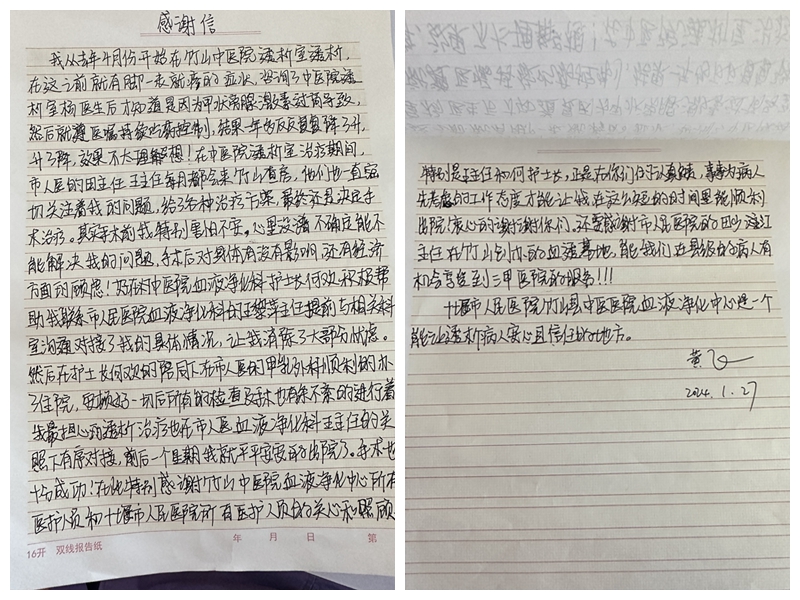 感谢信
我从去年4月份开始在竹山中医院透析室透析,
在这之前就有脚一表就高的症状,咨询了中医院透
析室杨医生后才知道是因为甲状旁腺激素过高导致,
然后就遵医嘱持续药物控制,结果一年多反反复复降了升,
升了降,效果不大理想!在中医院透析室治疗期间,
市人民的田主任王主任每月都会来竹山查房,他们也一直密
切关注着我的问题,给了各种治疗方案,最终还是决定手
术治疗。其实手术前我特别害怕不安。心里没谱不确定能不
能解决我的问题,手术后对身体有没有影响,还有经济
方面的顾虑!好在对中医院血液净化科护士长何欢积极帮
助我联系市人民医院血液净化科的王黎萍主任提前与相关科
室沟通对接了我的具体情况,让我消除了大部分忧虑。
然后在护士长何欢的陪同下在市人民的甲乳外科顺利的办
了住院,安顿好一切后所有的检查及手术也有条不紊的进行着
我最担心的透析治疗也在市人民血液净化科王主任的关
照下有序对接,前后一个星期我就平平安安的出院了。手术也
十分成功!在此特别感谢竹山中医院血液净化中心所有
医护人员和十堰市人民医院所有医护人员的关心和照顾
16开 双线报告纸 年 月 日 第
特别是王主任和何护士长,正是在你们任何认真负责,事事为病人
先考虑的工作态度才能让我在这么短的时间里能顺利
出院!衷心的谢谢谢你们。还要感谢市人民医院的田
主任在竹山创办的血透基地,能我们在县级的病人有
机会享受到三甲医院的服务!!!
十堰市人民医院竹山县中医医院血液净化中心是一个
能让透析病人安心且信任的好地方。
黄
2024.1.27